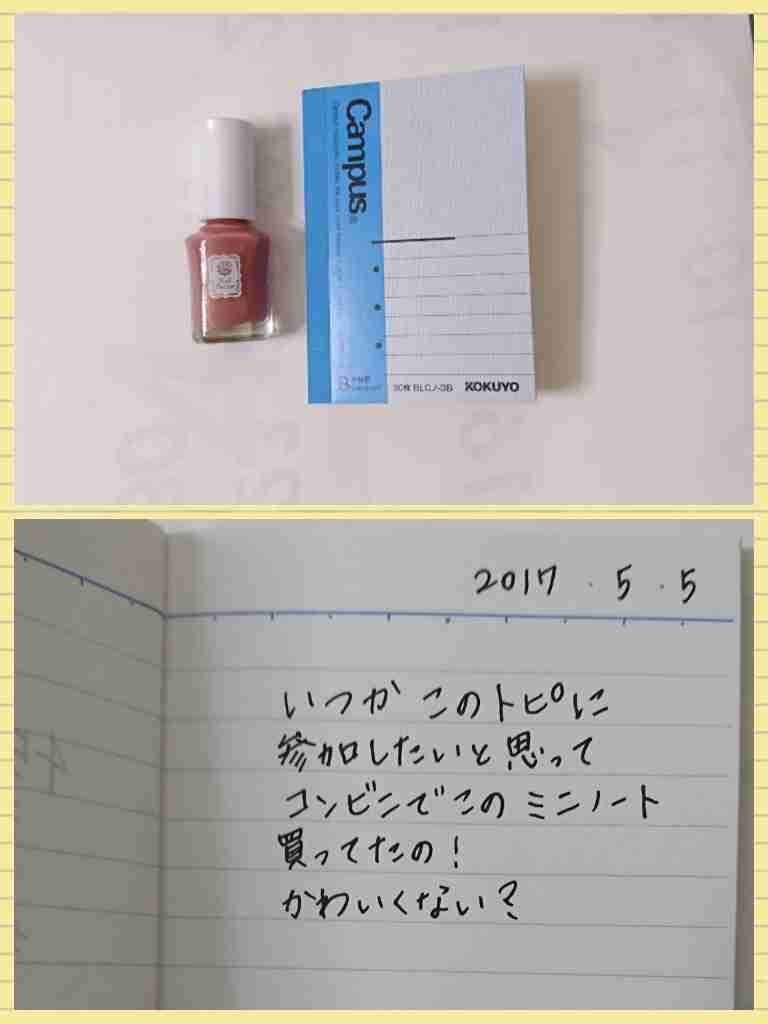 Campus
B
KOKUYO
2017.5.5
いつか このトピに
参加したいと思って
コンビニでこのミニノート
買ってたの!
かわいくない?